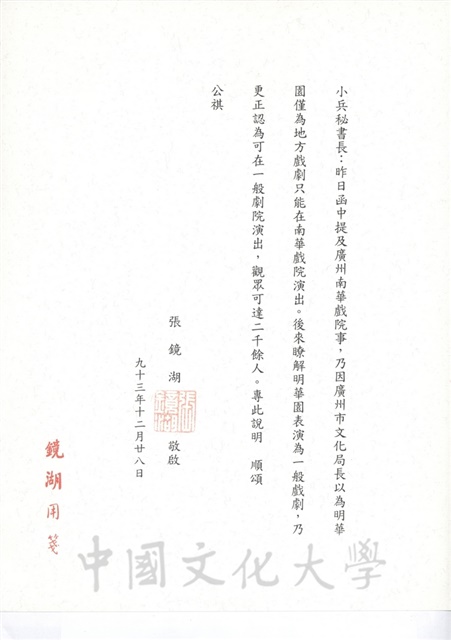 小兵秘書長：昨日函中提及廣州南華戲院事，乃因廣州市文化局長以為明華
園僅為地方戲劇只能在南華戲院演出。後來瞭解明華園表演為一般戲劇，乃
更正認為可在一般劇院演出，觀眾可達二千餘人。專此說明　順頌
公祺
張鏡湖 敬啟
九十三年十二月廿八日
鏡湖用箋
中國文化大學